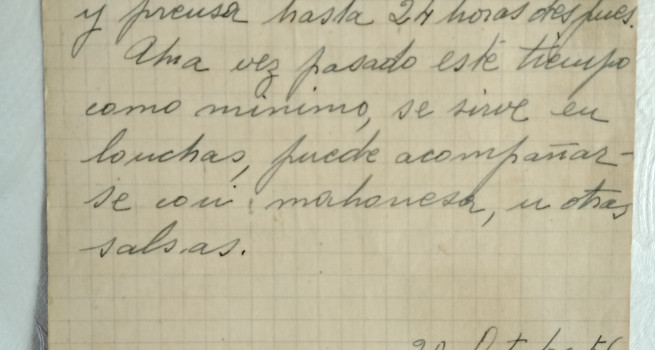 y prensa hasta 24 horas despues.
Una vez pasado este tiempo
como minimo, se sirve en
lonchas, puede acompañar-
se con mahonesa, u otras
salsas.